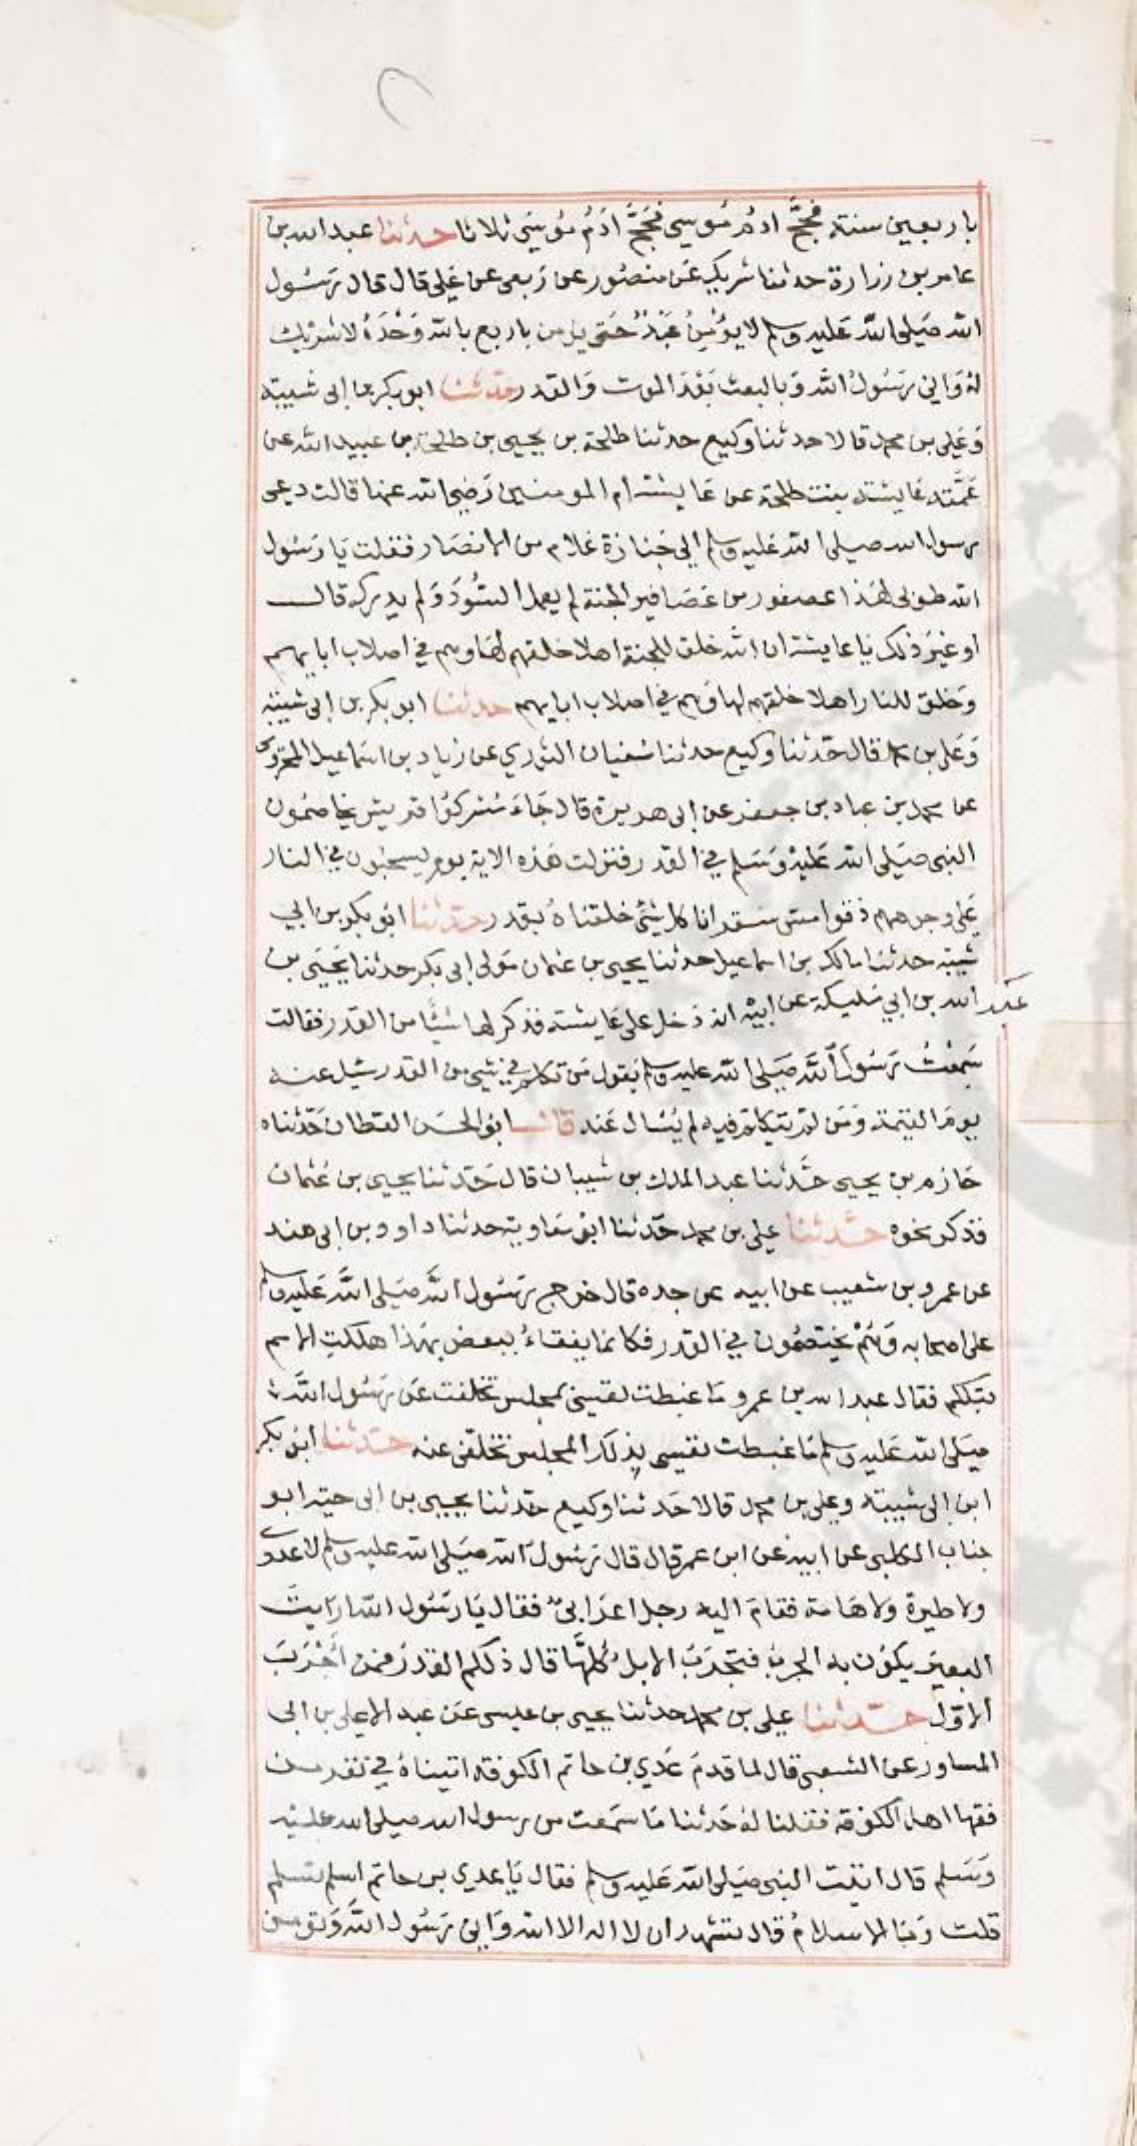 باربعين سنة فحجَّ ادم مُوسى فحَجَّ ادَمُ مُوسَى ثلاثا حدثنا عبد الله بن
عامر بن زرارة حدثنا شريك عَن منصُور عن رَبعى عن عَلى قال قال رَسُول
الله صَلى الله عَليه وسلم لا يؤمِنُ عَبْدٌ حَتى يؤمن باربع بالله وَحْدَهُ لا شريك
لهُ وَاني رَسُولُ الله وَبالبعث بَعْدَ الموت وَالقدر حدثنا ابو بكر بن ابى شيبة
وَعَلى بن محمد قالا حدثنا وكيع حدثنا طلحة بن يحيى بن طلحة بن عبيد الله عن
عَمَّته عَايشة بنت طلحة عن عَايشة ام المومنين رَضي الله عنها قالت دعى
رسول الله صلى الله عَليه وسلم الى جَنازة غلام من الانصَار فقلت يَا رَسُول
الله طوبى لهَذا عصفور من عَصَافير الجنة لم يعمل السُّوَء وَلم يدركه قال
او غيرَ ذلك يا عايشة ان الله خلق للجنة اهلا خلقهم لهَا وهم في اصلاب ابايهم
وَخلق للنار اهلا خلقهم لها وَهم في اصلاب ابايهم حدثنا ابو بكر بن ابى شيبَة
وَعَلى بن محمد قال حَدثنا وكيع حدثنا سُفيان الثوري عن زياد بن اسمَاعيل المخزومى
عن محمد بن عباد بن جعفر عن ابى هريرة قال جَاءَ مُشركوُا قريش يخاصمُون
النبى صَلى الله عَليْه وَسَلم في القدر فنزلت هَذه الاية يوم يسحَبُون في النار
عَلى وجوههم ذوقوا مس سقر انا كل شئ خلقناهُ بقدر حَدثنا ابُو بكر بن ابي
شيبَة حدثنا مالك بن اسماعيل حدثنا يحيى بن عثمان مَولى ابى بكر حدثنا يَحيَى بن
عَبد الله بن ابي مُليكة عن ابيْه انه دَخل على عَايشة فذكر لها شيئًا من القدر فقالت
سَمعْتُ رَسُولَ اللَّه صَلى الله عليه وسلم يَقول مَن تكلم في شي من القدر سُيل عنه
يومَ القيمة وَمَن لم يتكلم فيه لم يُسْال عَنه قال ابُو الحسَن القطان حَدَّثناه
حَازم بن يحيى حَدَّثنا عبد الملك بن شيبان قال حَدثنا يحيى بن عُثمان
فذكر نحوه حَدثنا علي بن محمد حَدّثنا ابُو مُعاوية حدثنا داوود بن ابى هند
عن عمرو بن شعيب عن ابيه عن جده قال خرج رَسُول اللَّه صَلى اللَّه عَليه وسلم
على اصحابه وَهُمْ يَختصُمون في القدر فكانما يفقاءُ ببعض بهَذا هلكت الامم
قبلكم فقال عبد الله بن عمرو مَا غبطت نفسى بمجلس تخلفت عَن رَسُول اللَّه
صَلى الله عَليه وسلم مَا غبطت نفسى بذلك المجلس تخلفى عنه حَدثنا ابُو بكر
ابن ابى شيبة وعلى بن محمد قالا حَدثنا وكيع حَدثنا يحيى بن ابى حية ابو
جناب الكلبى عن ابيه عن ابن عمر قال قال رَسُول الله صَلى الله عليه وسلم لا عدوى
ولا طيرة ولا هَامة فقامَ اليه رجل اعرَابىٌ فقال يَا رسُول الله ارَايتَ
البعيرَ يكوُن به الجرب فتجرَبَ الابل كلهَّا قال ذلكم القدر فمن اَجْرَبَ
الاوّل حَدّثنا علي بن محمد حدثنا يحيى بن عيسى عَن عبد الاعلى بن ابى
المساور عن الشعبى قال لما قدمَ عَدي بن حاتم الكوفة اتيناهُ في نفر من
فقها اهل الكوُفة فقلنا لهُ حَدثنا مَا سَمعت من رسول الله صلى الله عليْه
وَسَلم قال اتيت النبى صَلى الله عَليه وسلم فقال يَا عدي بن حاتم اسلم تسلم
قلت وَمَا الاسلامُ قال تشهد ان لا اله الا الله وَانى رَسُول اللَّه وَتومن